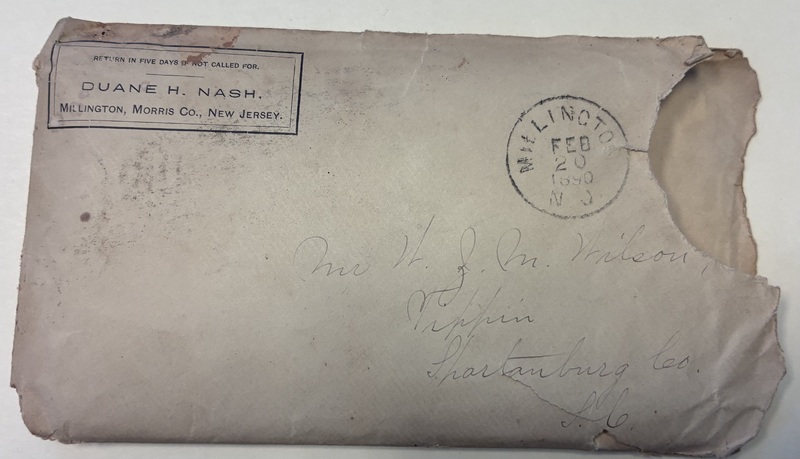 RETURN IN FIVE DAYS IF NOT CALLED FOR.
DUANE H. NASH.
MILLINGTON, MORRIS CO., NEW JERSEY.
MILLINGTO
FEB
20
1890
N J
Mr W. J. M. Wilson,
Tippin
Spartanburg Co.
S.C.